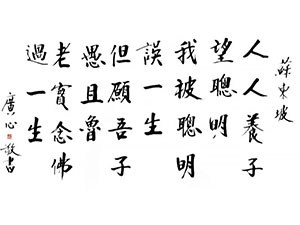 蘇東坡
人人養子
望聰明
我被聰明
誤一生
但願吾子
愚且魯
老實念佛
過一生
廣心敬書